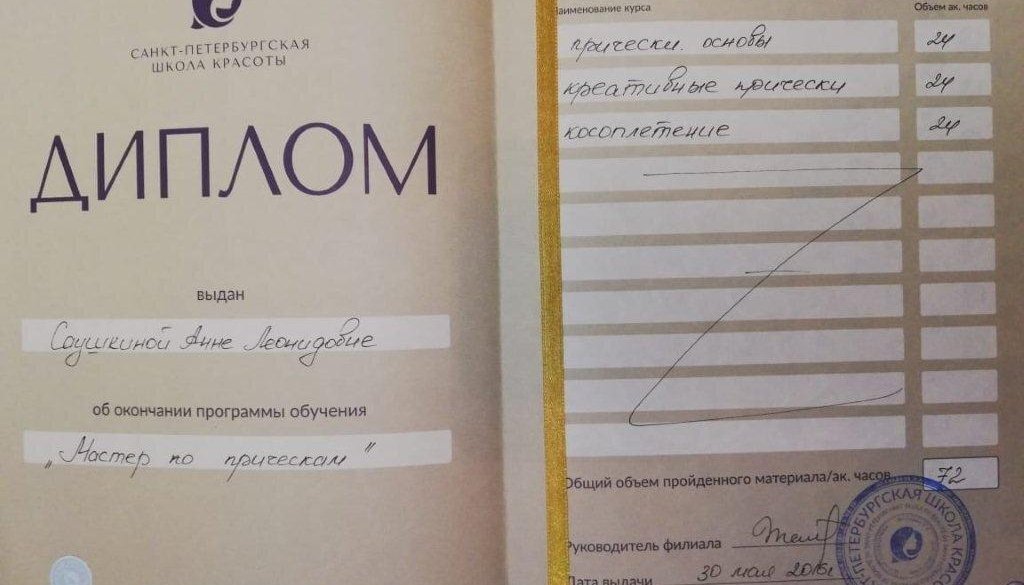 САНКТ-ПЕТЕРБУРГСКАЯ
ШКОЛА КРАСОТЫ
ДИПЛОМ
выдан
Соушкиной Анне Леонидовне
об окончании программы обучения
„Мастер по прическам"
Наименование курса Объем ак. часов
прически. основы 24
креативные прически 24
косоплетение 24
Общий объем пройденного материала/ак. часов 72
Руководитель филиала
Дата выдачи 30 мая
ПЕТЕРБУРГСКАЯ ШКОЛА КРА